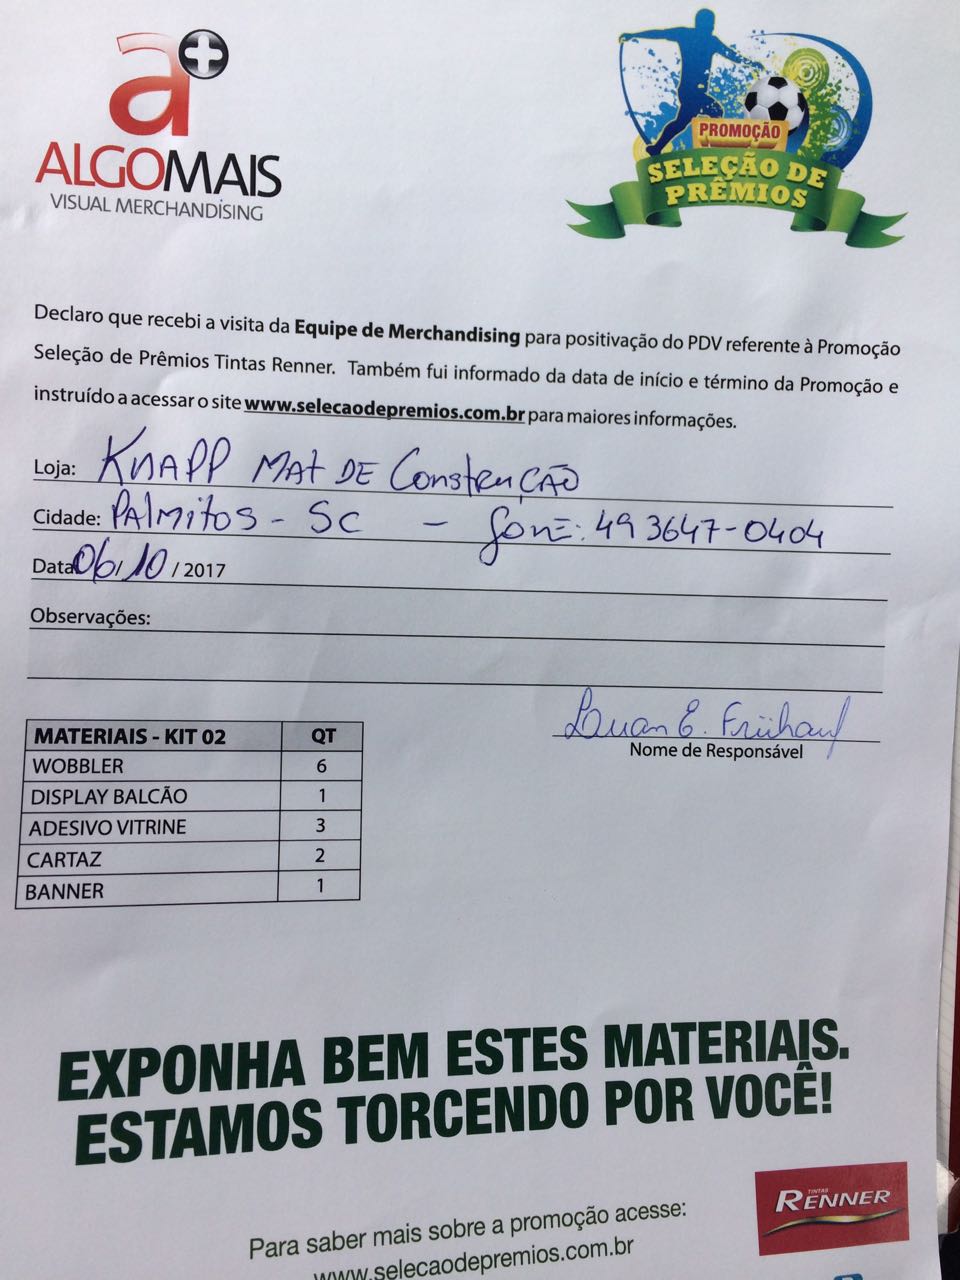 a+
ALGOMAIS
VISUAL MERCHANDISING
PROMOÇÃO
SELEÇÃO DE
PRÊMIOS
Declaro que recebi a visita da Equipe de Merchandising para positivação do PDV referente à Promoção
Seleção de Prêmios Tintas Renner. Também fui informado da data de início e término da Promoção e
instruído a acessar o site www.selecaodepremios.com.br para maiores informações.
Loja: KNAPP MAT DE CONSTRUÇÃO
Cidade: PALMITOS - SC - FONE: 49 3647-0404
Data 06/10/2017
Observações:
Luan E. Frühauf
Nome de Responsável
MATERIAIS - KIT 02 QT
WOBBLER 6
DISPLAY BALCÃO 1
ADESIVO VITRINE 3
CARTAZ 2
BANNER 1
EXPONHA BEM ESTES MATERIAIS.
ESTAMOS TORCENDO POR VOCÊ!
TINTAS
RENNER
Para saber mais sobre a promoção acesse:
www.selecaodepremios.com.br